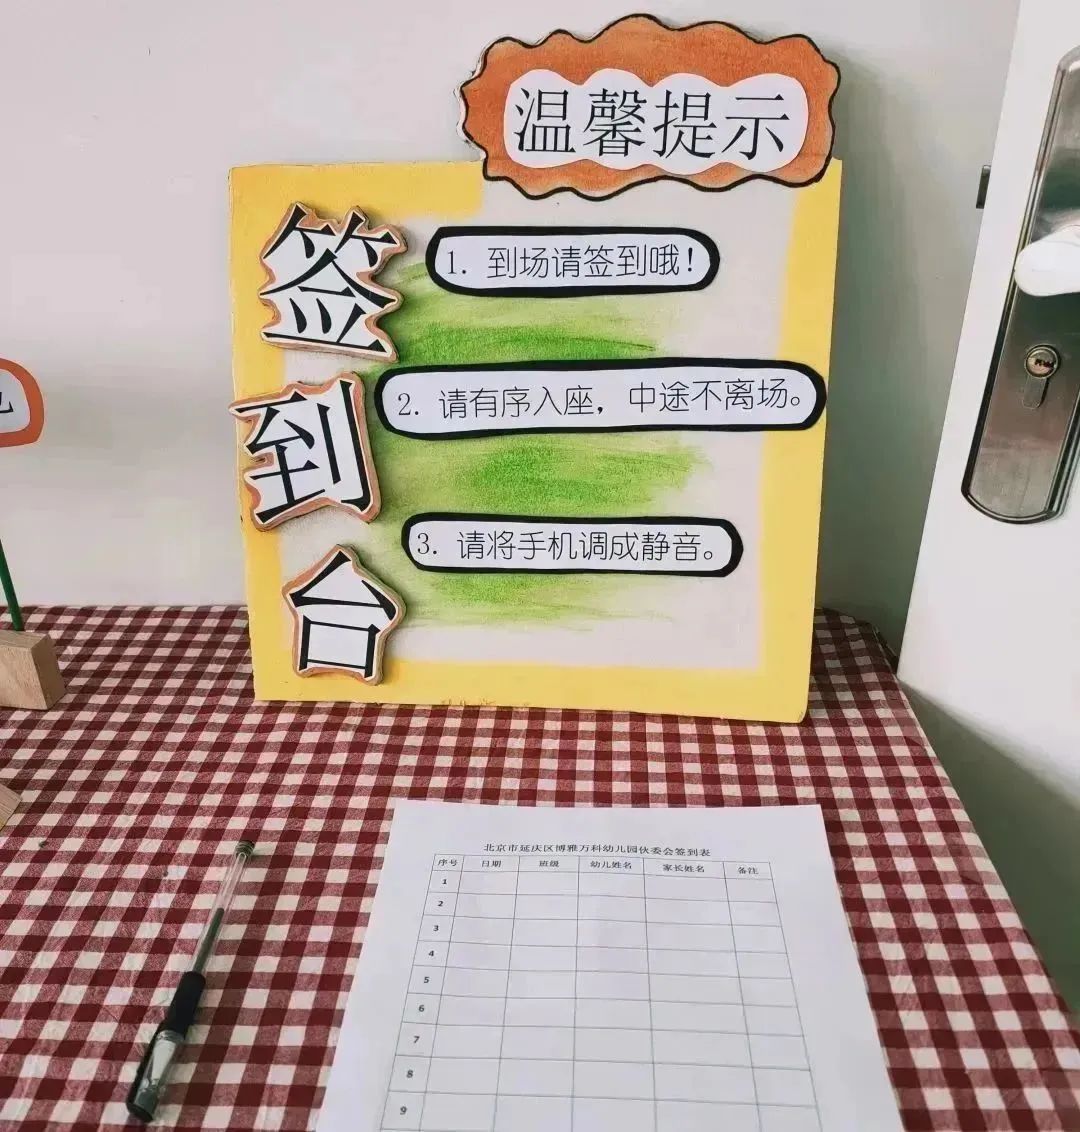 温馨提示
签到台
1. 到场请签到哦！
2. 请有序入座，中途不离场。
3. 请将手机调成静音。
北京市延庆区博雅万科幼儿园伙委会签到表
序号 日期 班级 幼儿姓名 家长姓名 备注
1
2
3
4
5
6
7
8
9